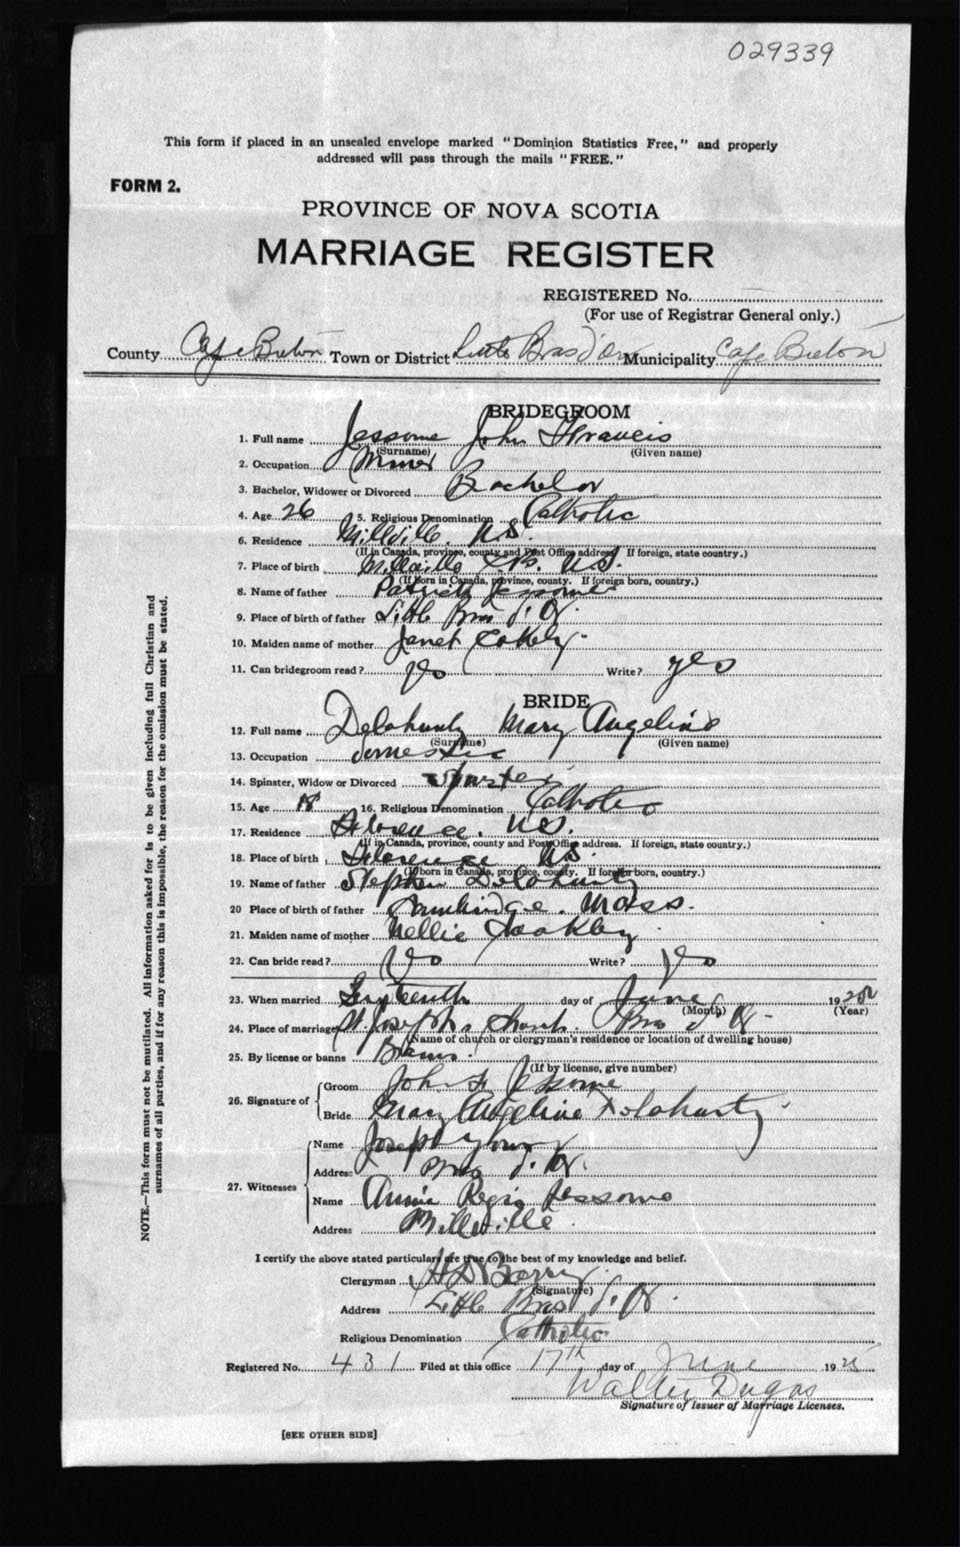 029339
This form if placed in an unsealed envelope marked "Dominion Statistics Free," and properly
addressed will pass through the mails "FREE."
FORM 2.
PROVINCE OF NOVA SCOTIA
MARRIAGE REGISTER
REGISTERED No.
(For use of Registrar General only.)
County Cape Breton Town or District Little Bras d'Or Municipality Cape Breton
BRIDEGROOM
1. Full name Jessome John Francis
(Surname) (Given name)
2. Occupation Miner
3. Bachelor, Widower or Divorced Bachelor
4. Age 26 5. Religious Denomination Catholic
6. Residence Millville. N.S.
(If in Canada, province, county and Post Office address. If foreign, state country.)
7. Place of birth Millville C.B. N.S.
(If born in Canada, province, county. If foreign born, country.)
8. Name of father Patrick Jessome
9. Place of birth of father Little Bras d'Or
10. Maiden name of mother Janet
11. Can bridegroom read? yes Write? yes
BRIDE
12. Full name Delahunty Mary Angeline
(Surname) (Given name)
13. Occupation domestic
14. Spinster, Widow or Divorced Spinster
15. Age 18 16. Religious Denomination Catholic
17. Residence Florence. N.S.
(If in Canada, province, county and Post Office address. If foreign, state country.)
18. Place of birth Florence N.S.
(If born in Canada, province, county. If foreign born, country.)
19. Name of father Stephen Delahunty
20 Place of birth of father Cambridge. Mass.
21. Maiden name of mother Nellie Coakley
22. Can bride read? Yes Write? Yes
23. When married Sixteenth day of June 19
(Month) (Year)
24. Place of marriage St Joseph's Church. Bras d'Or
(Name of church or clergyman's residence or location of dwelling house)
25. By license or banns Banns.
(If by license, give number)
26. Signature of Groom John F. Jessome
Bride Mary Angeline Delahunty
27. Witnesses Name Joseph Young
Address Bras d'Or.
Name Annie Regis Jessome
Address Millville
I certify the above stated particulars are true to the best of my knowledge and belief.
Clergyman Barry
(Signature)
Address Little Bras d'Or.
Religious Denomination Catholic
Registered No. 431 Filed at this office 17th day of June 1925
Walter Dugas
Signature of Issuer of Marriage Licenses.
[SEE OTHER SIDE]
NOTE.—This form must not be mutilated. All information asked for is to be given including full Christian and
surnames of all parties, and if for any reason this is impossible, the reason for the omission must be stated.